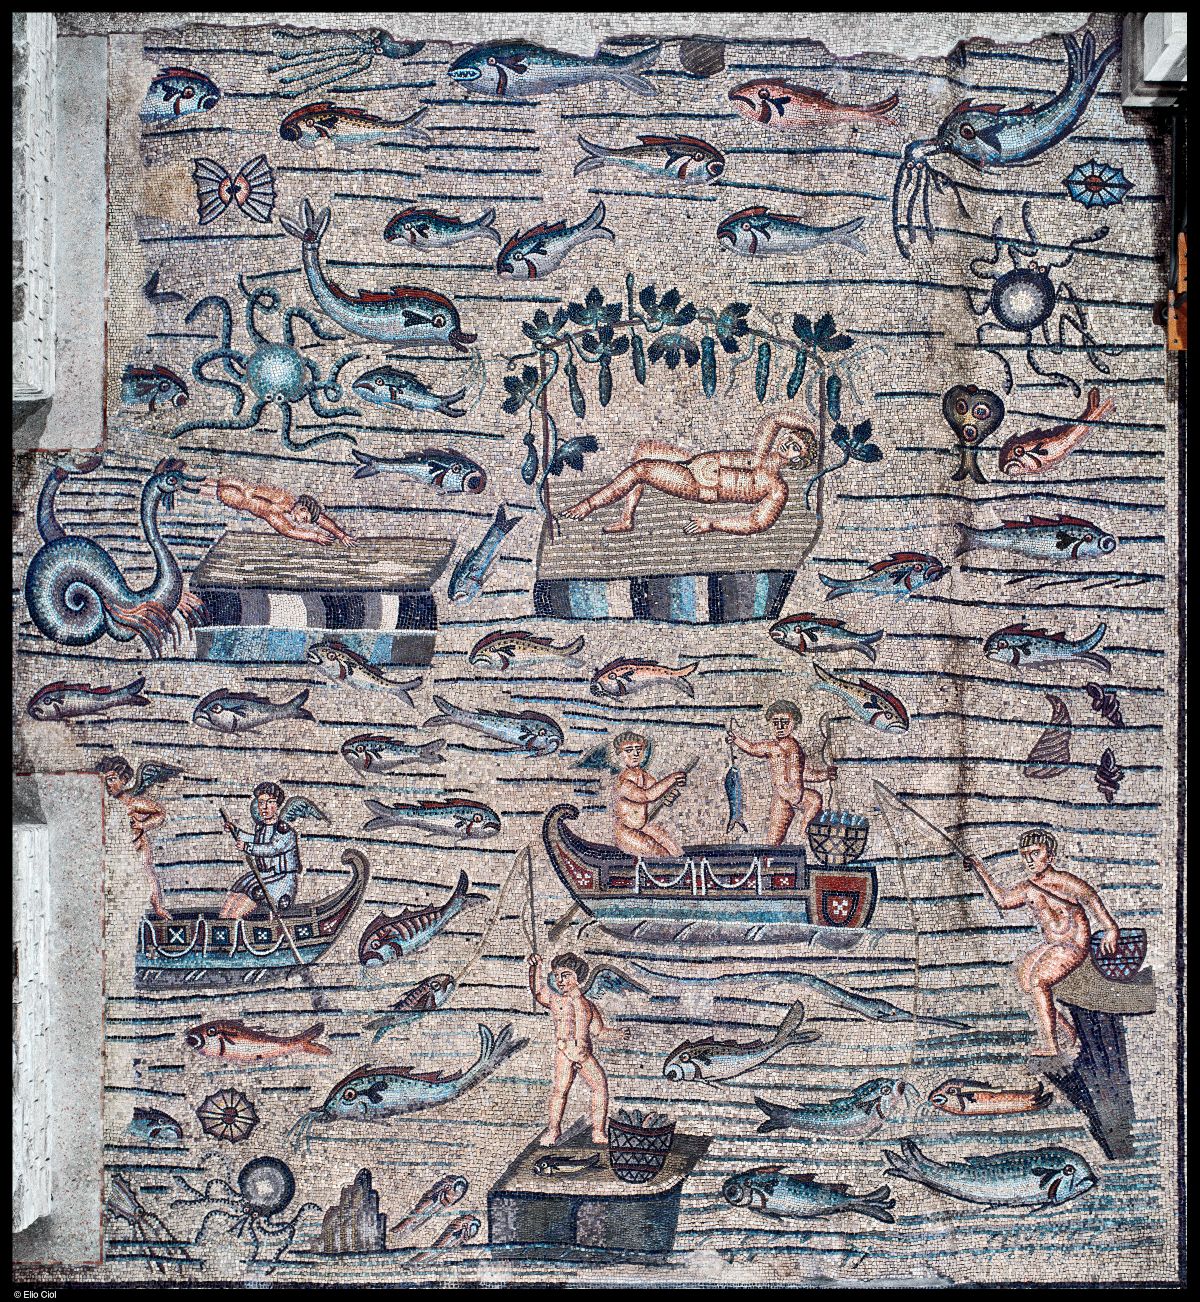 © Elio Ciol